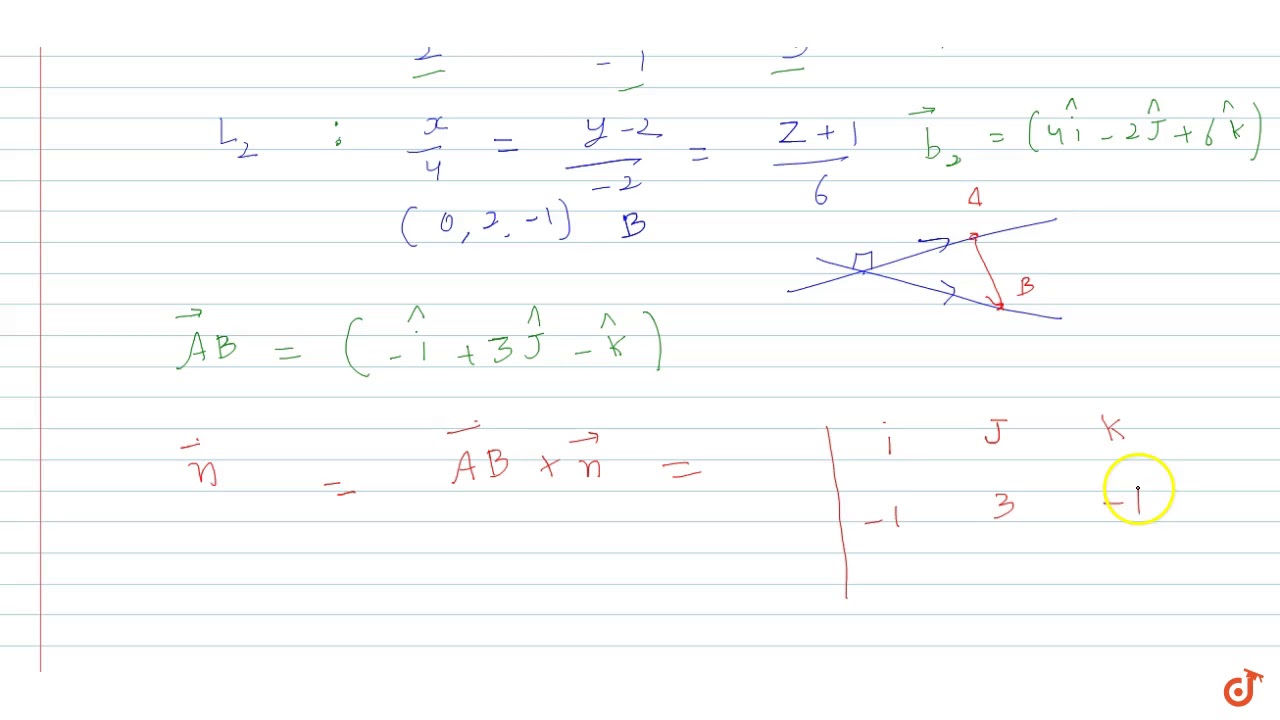 2 -1 3
L₂ : x/4 = (y-2)/-2 = (z+1)/6 b⃗₂ = (4î - 2Ĵ + 6K̂)
(0, 2, -1) B
A
B
A⃗B = (-î + 3Ĵ - K̂)
n⃗ = A⃗B × n⃗ = | i J K
-1 3 -1